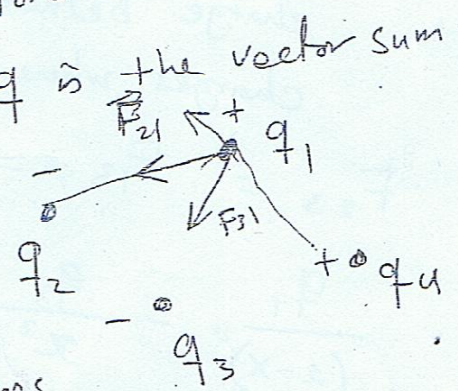 q is the vector sum
F21 +
q1
-
F31
q2
+ q4
- q3